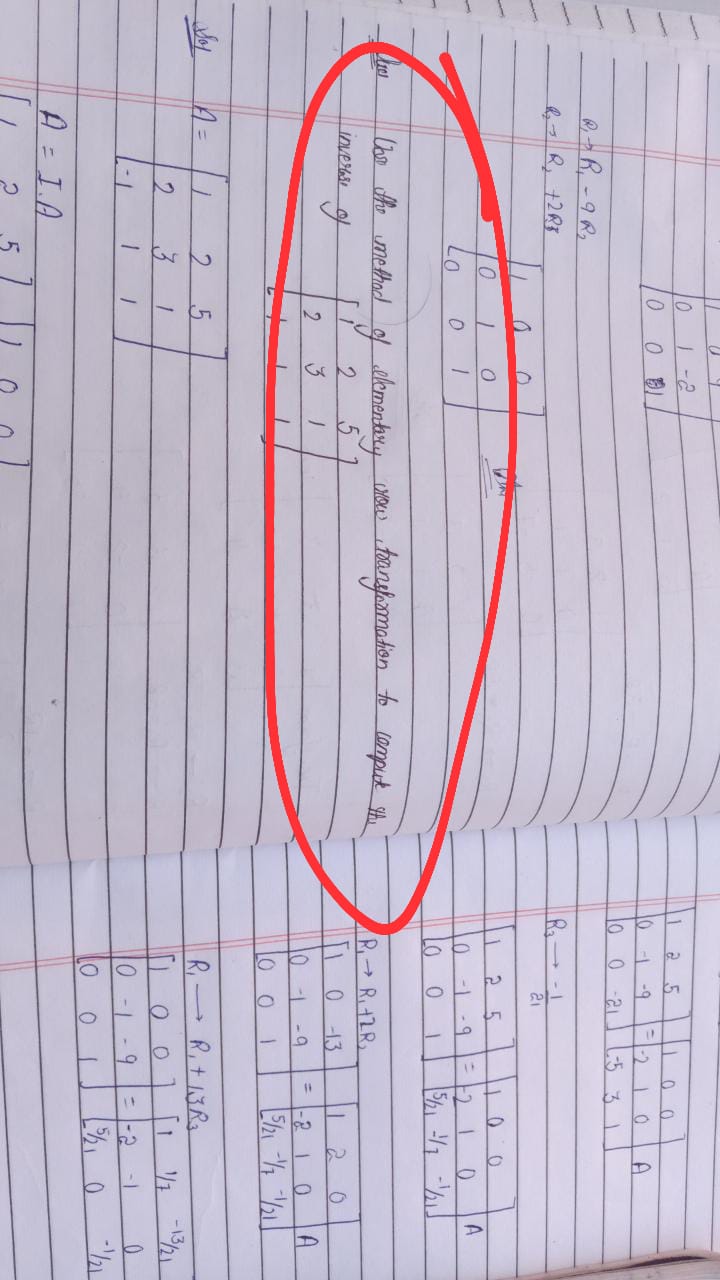 0 1 -2
0 0 1
R₁ → R₁ - 9R₃
R₂ → R₂ + 2R₃
[1 0 0]
[0 1 0]
[0 0 1]
Use the method of elementary row transformation to compute the
inverse of [1 2 5]
[2 3 1]
1 1]
Sol A = [1 2 5]
2 3 1
[-1 1 1]
A = I.A
[1 2 5] [1 0 0]
[1 2 5] [1 0 0]
0 -1 -9 = -2 1 0 A
[0 0 -21] [-5 3 1]
R₃ → -1/21
[1 2 5] [1 0 0]
0 -1 -9 = -2 1 0 A
[0 0 1] [5/21 -1/7 -1/21]
R₁ → R₁ + 2R₂
[1 0 -13] [1 2 0]
0 -1 -9 = -2 1 0 A
[0 0 1] [5/21 -1/7 -1/21]
R₁ → R₁ + 13R₃
[1 0 0] [1 1/7 -13/21
0 -1 -9 = -2 -1 0
[0 0 1] [5/21 0 -1/21